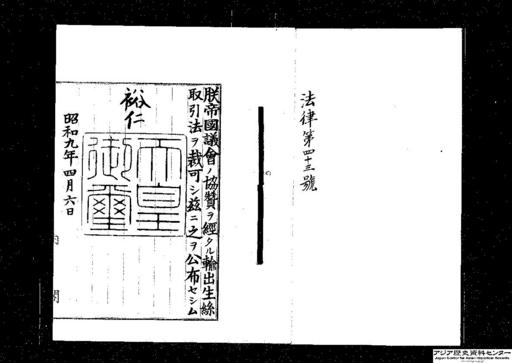 法律第四十三號
朕帝國議會ノ協贊ヲ經タル輸出生絲
取引法ヲ裁可シ玆ニ之ヲ公布セシム
裕仁
天皇御璽
昭和九年四月六日
内閣
アジア歴史資料センター
Japan Center for Asian Historical Records